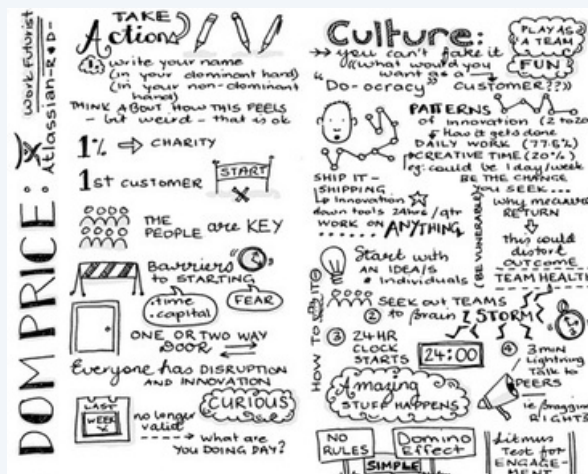 DOM PRICE:
Work Futurist
Atlassian-R&D-
TAKE
Action
1. write your name
(in your dominant hand)
(in your non-dominant
hand)
THINK ABOUT HOW THIS FEELS
- bit weird - that is ok
1% ⇒ CHARITY
1st CUSTOMER
START
THE
PEOPLE are KEY
Barriers
to STARTING
.time
.capital
FEAR
ONE OR TWO WAY
DOOR
Everyone has DISRUPTION
AND INNOVATION
CURIOUS
LAST
WEEK
no longer
valid
what are
YOU DOING DAY?
Culture:
PLAY AS
A TEAM
FUN
you can't fake it
"what would you
want as a
CUSTOMER??"
"Do-ocracy
PATTERNS
of innovation (2 to 20
Has it gets done
DAILY WORK (77.5%)
CREATIVE TIME (20%)
eg: could be 1 day/week
SHIP IT -
SHIPPING
Innovation
down tools 24hrs/qtr
WORK ON ANYTHING
BE THE CHANGE
YOU SEEK...
(BE VULNERABLE)
why measure
RETURN
this could
distort
OUTCOME
TEAM HEALTH
HOW TO DO IT
Start with
AN IDEA/S
* Individuals
SEEK out TEAMS
2 to Brain STORM
3 24HR
CLOCK
STARTS
24:00
4 3min
Lightning
talk to
PEERS
ie Bragging
RIGHTS
Amazing
STUFF HAPPENS
NO
RULES
Domino
Effect
SIMPLE
Litmus
Test for
ENGAGE-
MENT